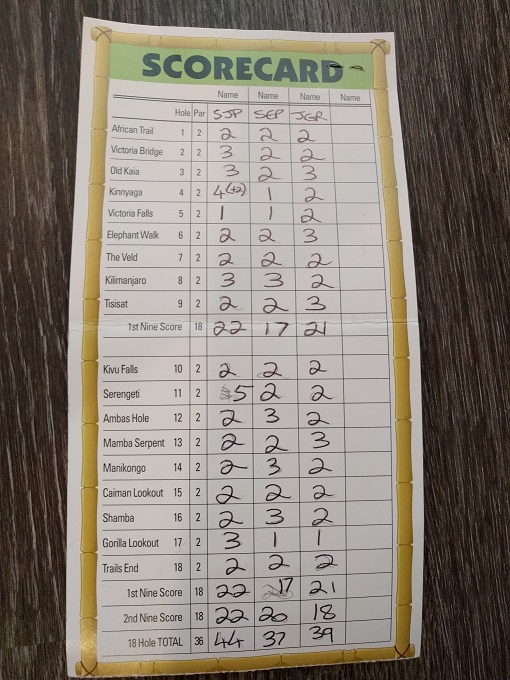 SCORECARD
Name Name Name Name
Hole Par SJP SEP JGR
African Trail 1 2 2 2 2
Victoria Bridge 2 2 3 2 2
Old Kaia 3 2 3 2 3
Kinnyaga 4 2 4(+2) 1 2
Victoria Falls 5 2 1 1 2
Elephant Walk 6 2 2 2 3
The Veld 7 2 2 2 2
Kilimanjaro 8 2 3 3 2
Tisisat 9 2 2 2 3
1st Nine Score 18 22 17 21
Kivu Falls 10 2 2 2 2
Serengeti 11 2 5 2 2
Ambas Hole 12 2 2 3 2
Mamba Serpent 13 2 2 2 3
Manikongo 14 2 2 3 2
Caiman Lookout 15 2 2 2 2
Shamba 16 2 2 3 2
Gorilla Lookout 17 2 3 1 1
Trails End 18 2 2 2 2
1st Nine Score 18 22 17 21
2nd Nine Score 18 22 20 18
18 Hole TOTAL 36 44 37 39